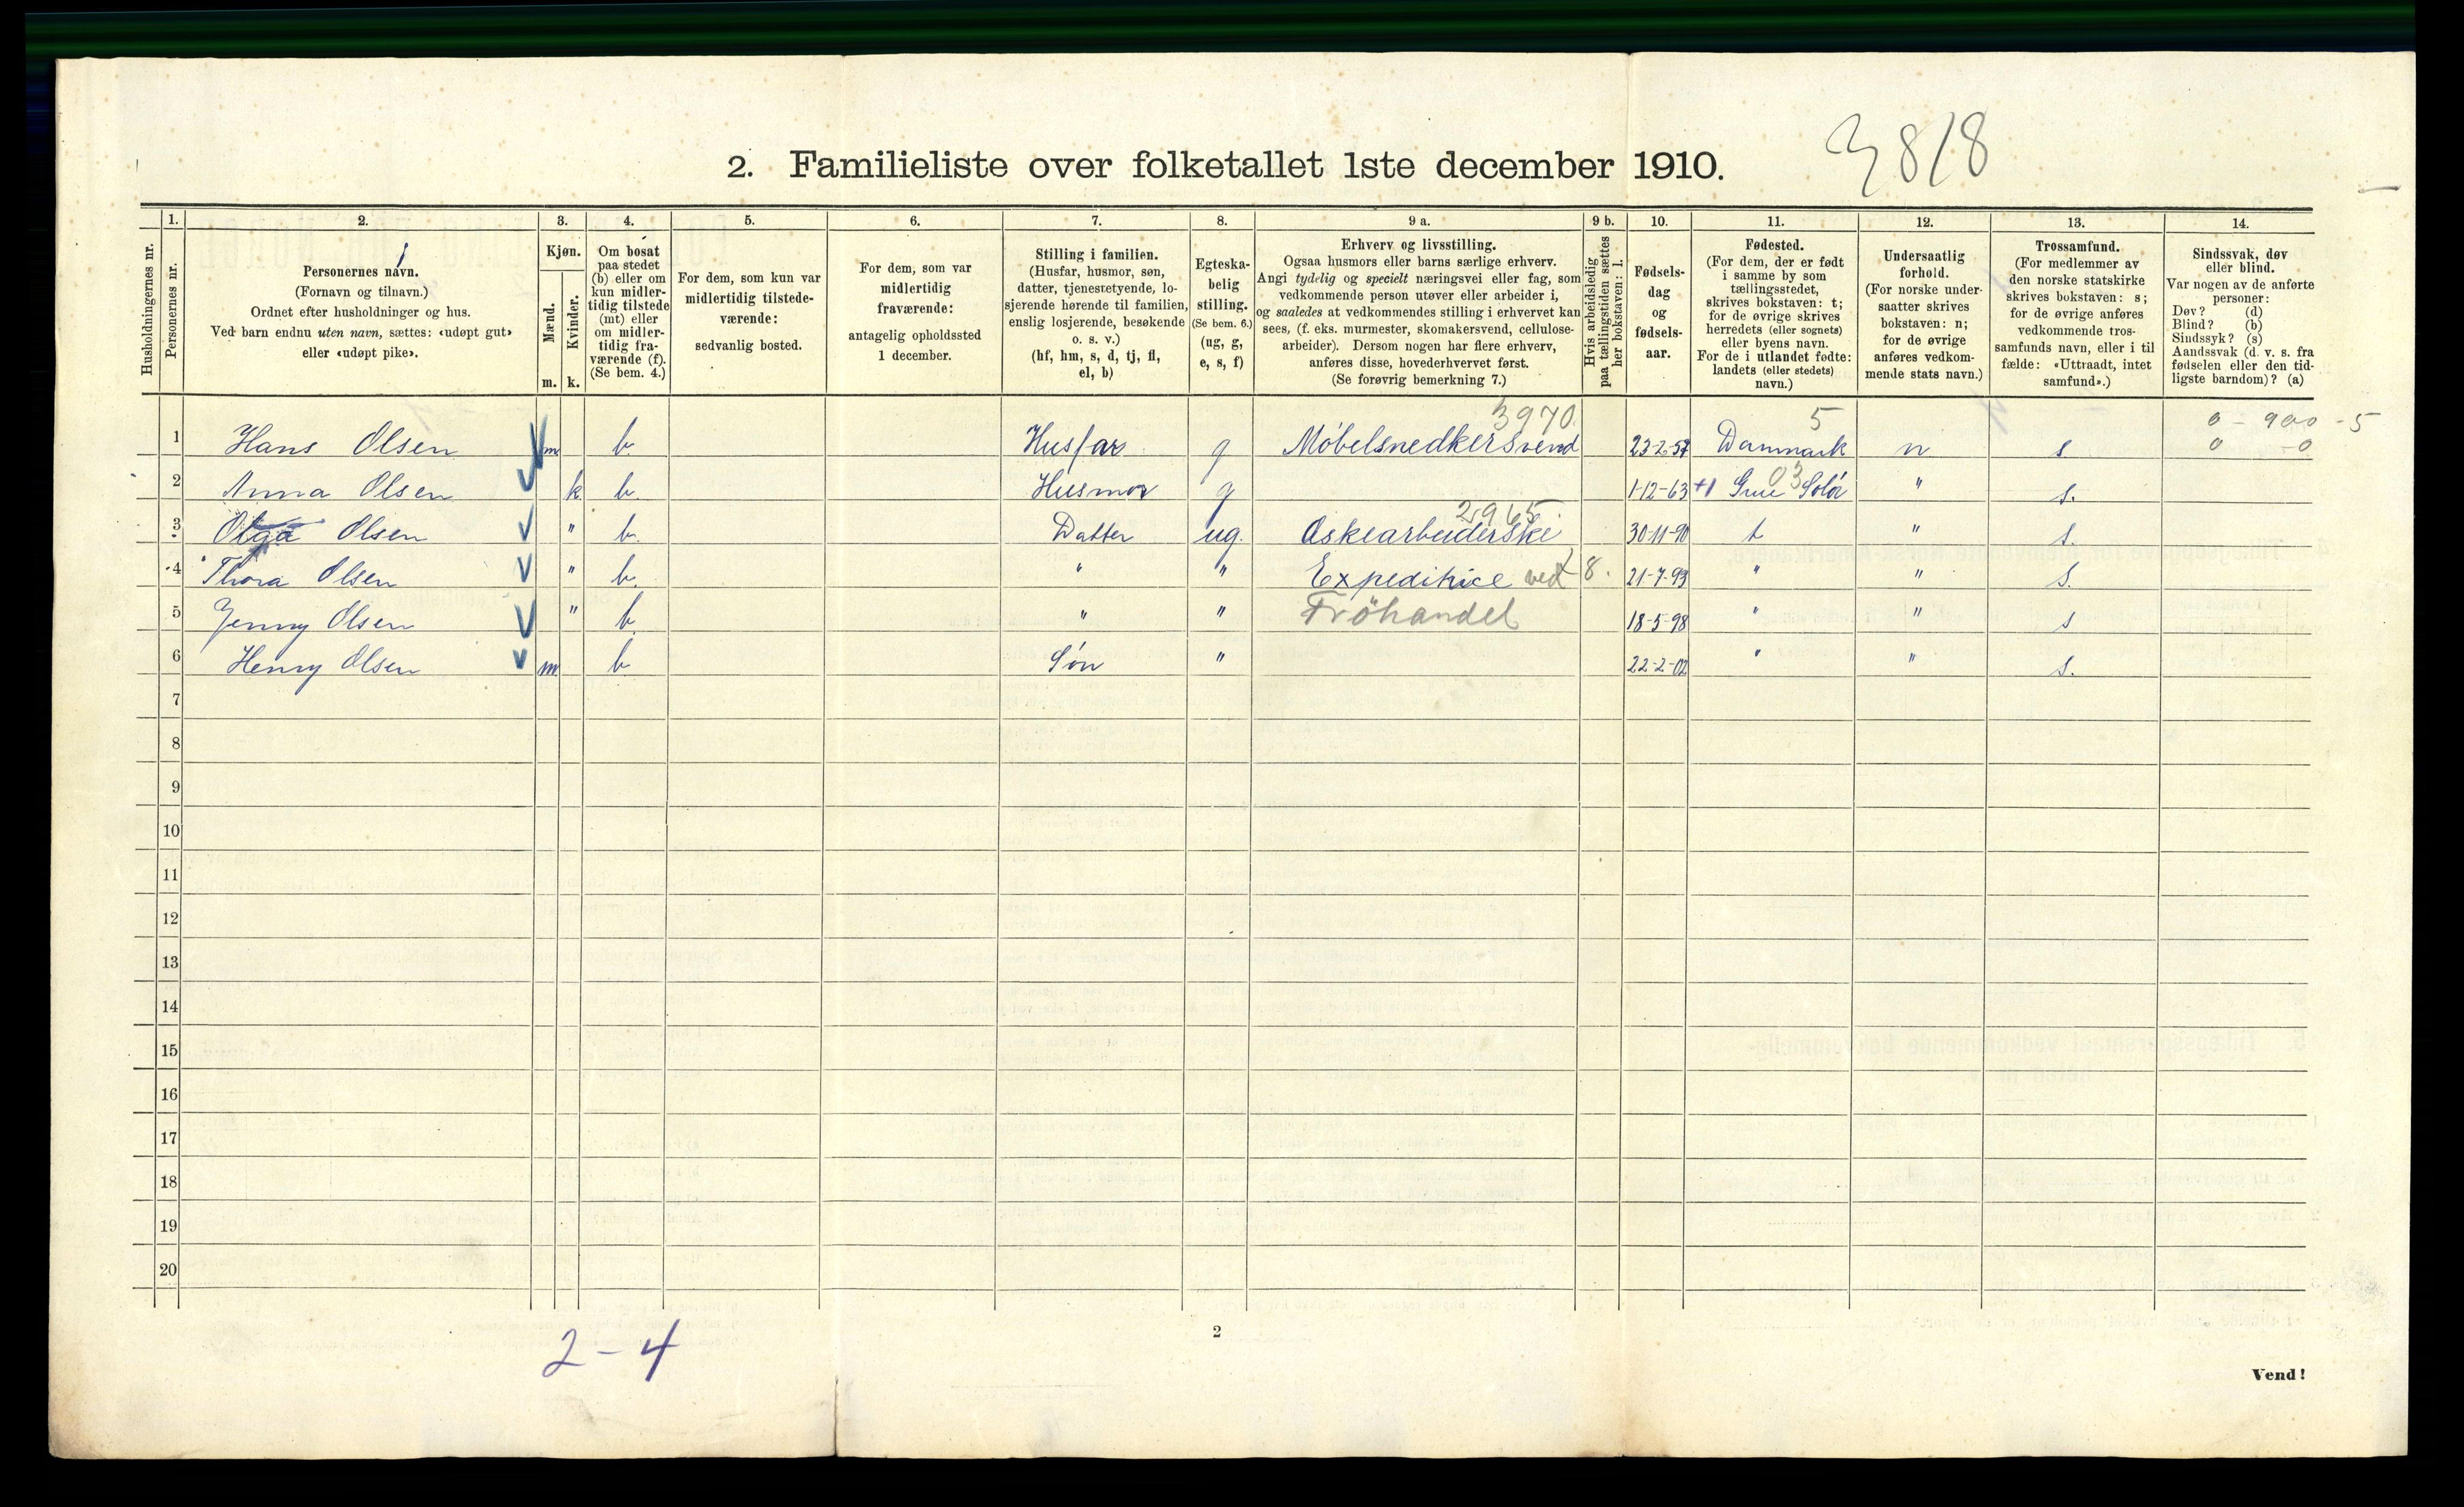 3818
2. Familieliste over folketallet 1ste december 1910.
Husholdningernes nr.
1.
Personernes nr.
2.
Personernes navn.
(Fornavn og tilnavn.)
Ordnet efter husholdninger og hus.
Ved barn endnu uten navn, sættes: «udøpt gut»
eller «udøpt pike».
3.
Kjøn.
Mænd.
Kvinder.
m. k.
4.
Om bosat
paa stedet
(b) eller om
kun midler-
tidig tilstede
(mt) eller
om midler-
tidig fra-
værende (f).
(Se bem. 4.)
5.
For dem, som kun var
midlertidig tilstede-
værende:
sedvanlig bosted.
6.
For dem, som var
midlertidig
fraværende:
antagelig opholdssted
1 december.
7.
Stilling i familien.
(Husfar, husmor, søn,
datter, tjenestetyende, lo-
sjerende hørende til familien,
enslig losjerende, besøkende
o. s. v.)
(hf, hm, s, d, tj, fl,
el, b)
8.
Egteska-
belig
stilling.
(Se bem. 6.)
(ug, g,
e, s, f)
9 a.
Erhverv og livsstilling.
Ogsaa husmors eller barns særlige erhverv.
Angi tydelig og specielt næringsvei eller fag, som
vedkommende person utøver eller arbeider i,
og saaledes at vedkommendes stilling i erhvervet kan
sees, (f. eks. murmester, skomakersvend, cellulose-
arbeider). Dersom nogen har flere erhverv,
anføres disse, hovederhvervet først.
(Se forøvrig bemerkning 7.)
9 b.
Hvis arbeidsledig
paa tællingstiden sættes
her bokstaven: l.
10.
Fødsels-
dag
og
fødsels-
aar.
11.
Fødested.
(For dem, der er født
i samme by som
tællingsstedet,
skrives bokstaven: t;
for de øvrige skrives
herredets (eller sognets)
eller byens navn.
For de i utlandet fødte:
landets (eller stedets)
navn.)
12.
Undersaatlig
forhold.
(For norske under-
saatter skrives
bokstaven: n;
for de øvrige
anføres vedkom-
mende stats navn.)
13.
Trossamfund.
(For medlemmer av
den norske statskirke
skrives bokstaven: s;
for de øvrige anføres
vedkommende tros-
samfunds navn, eller i til
fælde: «Uttraadt, intet
samfund».)
14.
Sindssvak, døv
eller blind.
Var nogen av de anførte
personer:
Døv? (d)
Blind? (b)
Sindssyk? (s)
Aandssvak (d. v. s. fra
fødselen eller den tid-
ligste barndom)? (a)
3970. 5 0 - 900 - 5
1 Hans Olsen m b. Husfar g Møbelsnedkersvend 23-2-57 Danmark n s 0 - 0
03
2 Anna Olsen k b. Husmor g 1-12-63 +1 Grue Solør " s.
2965
3 Olga Olsen " b. Datter ug. Æskearbeiderske 30-11-90 t " s.
4 Thora Olsen " b. " " Expeditrice ved 8. 21-7-93 " " s.
5 Jenny Olsen " b " " Frøhandel 18-5-98 " " s
6 Henry Olsen m b Søn " 22-2-02 " " s.
7
8
9
10
11
12
13
14
15
16
17
18
19
20
2-4
2
Vend!